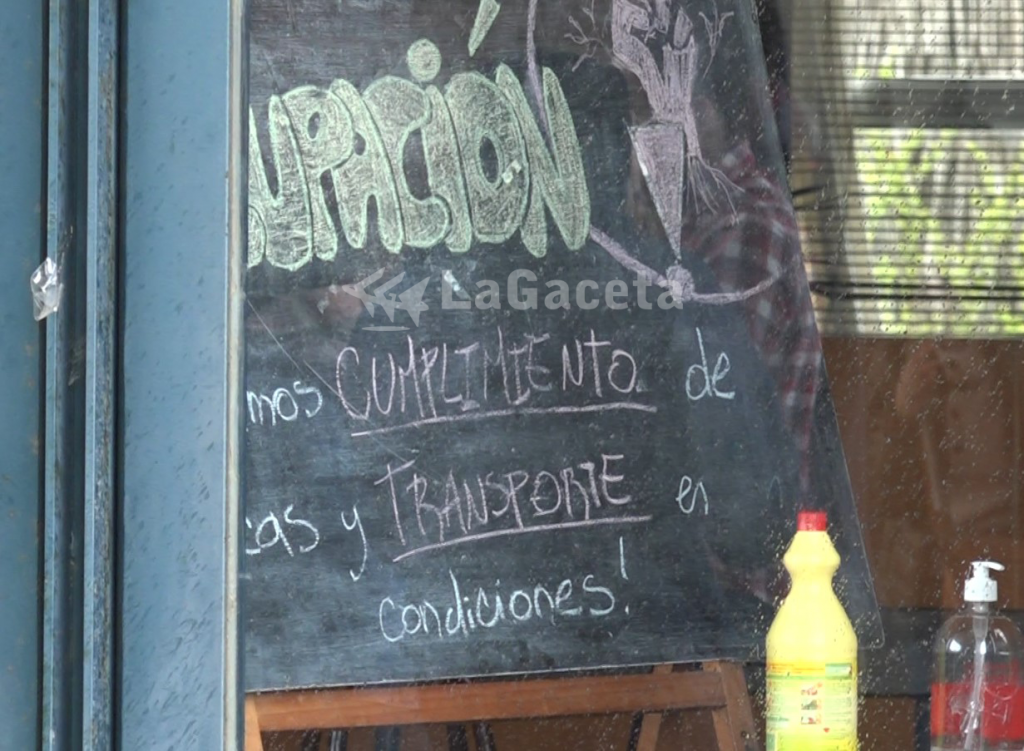 UPACIÓN
LaGaceta
mos CUMPLIMIENTO de
cas y TRANSPORTE en
condiciones!